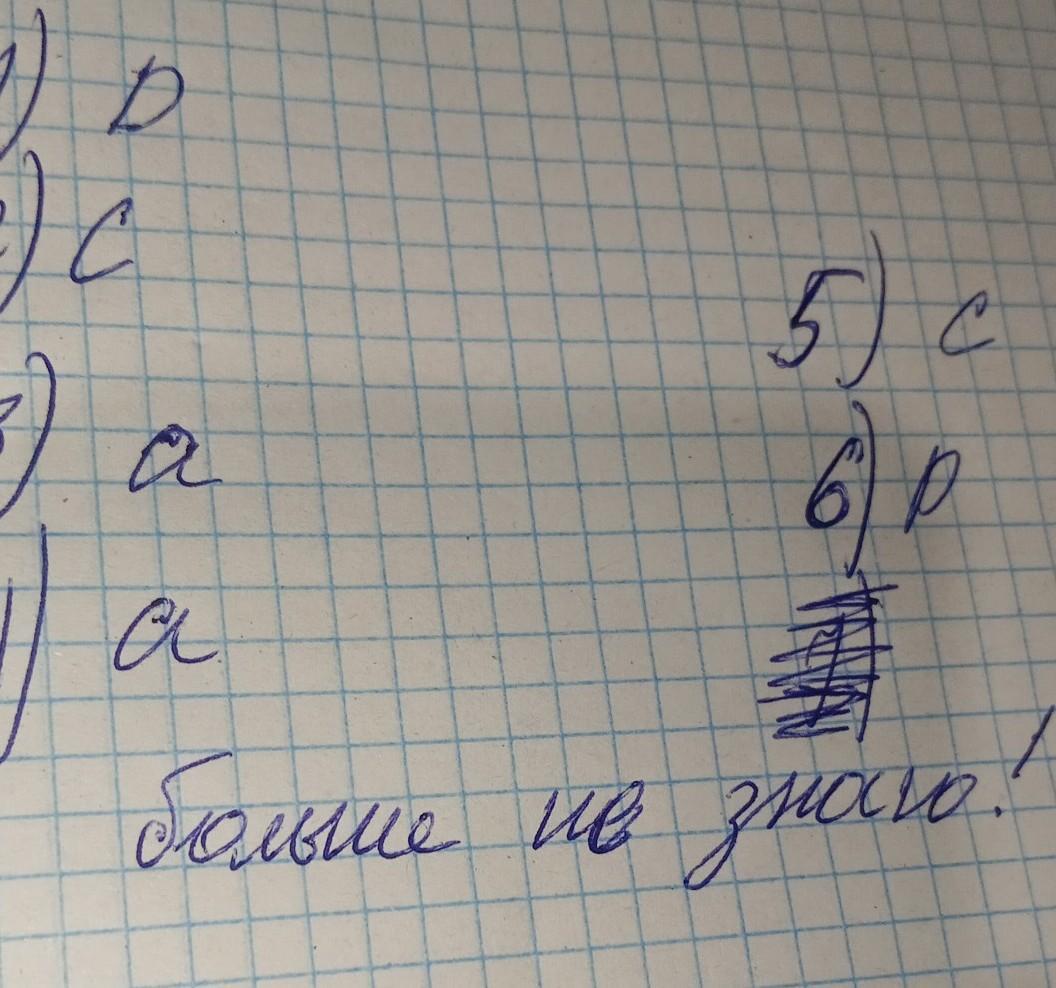 1) D
2) C
3) a
4) a
5) c
6) D
больше не знаю!